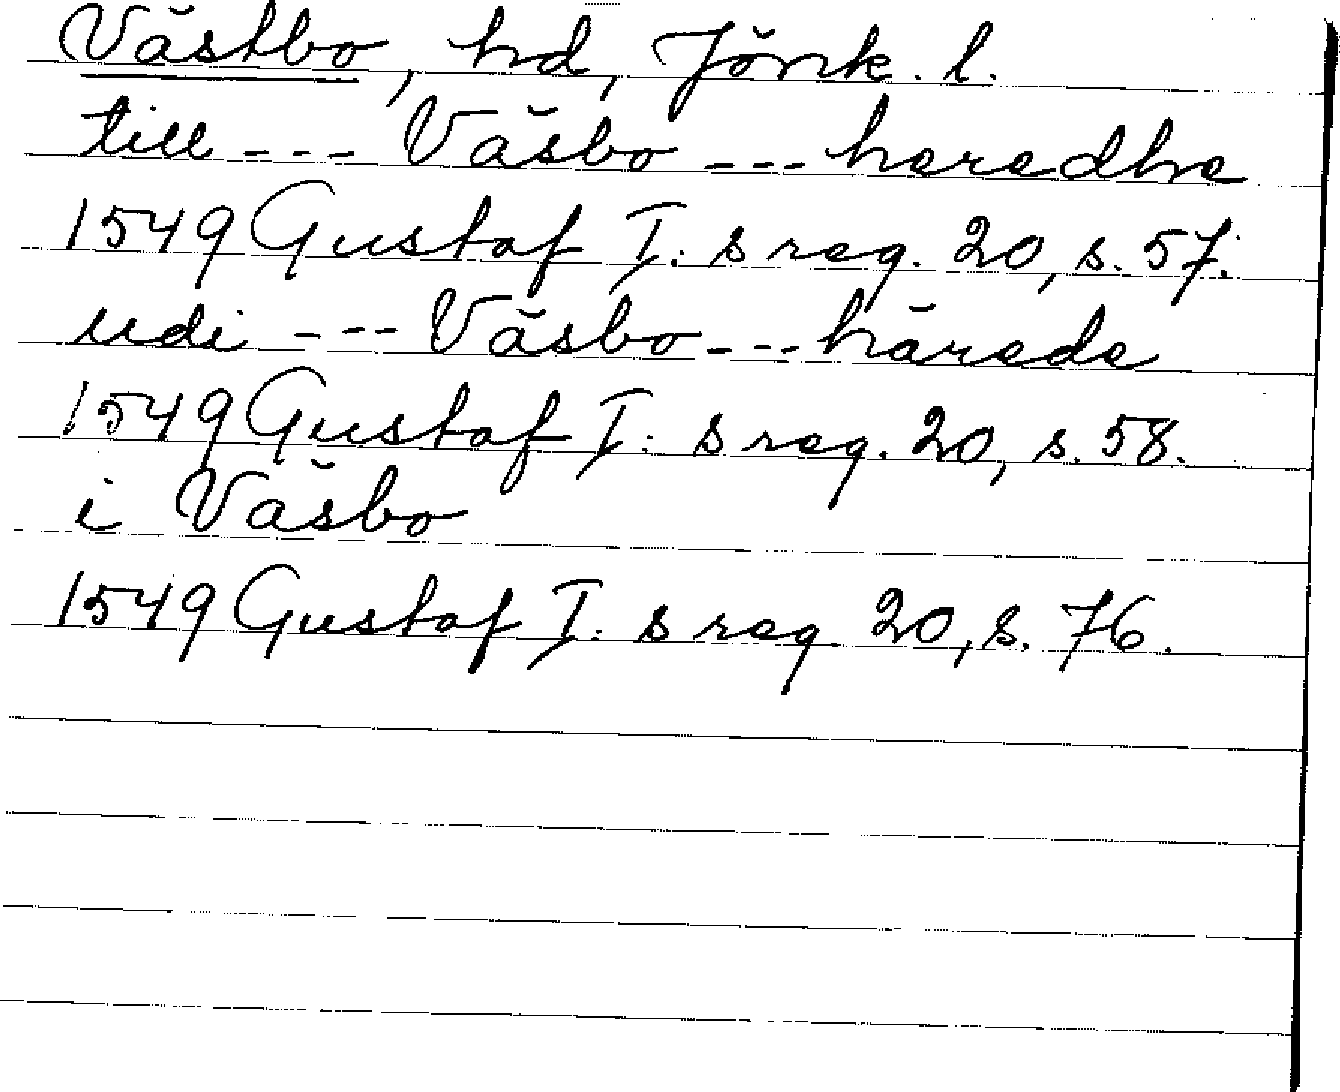 Västbo, hd, Jönk. l.
till --- Väsbo --- heredhe
1549 Gustaf I: s reg. 20, s. 57.
udi --- Väsbo --- härede
1549 Gustaf I: s reg. 20, s. 58.
i Väsbo
1549 Gustaf I: s reg 20, s. 76.